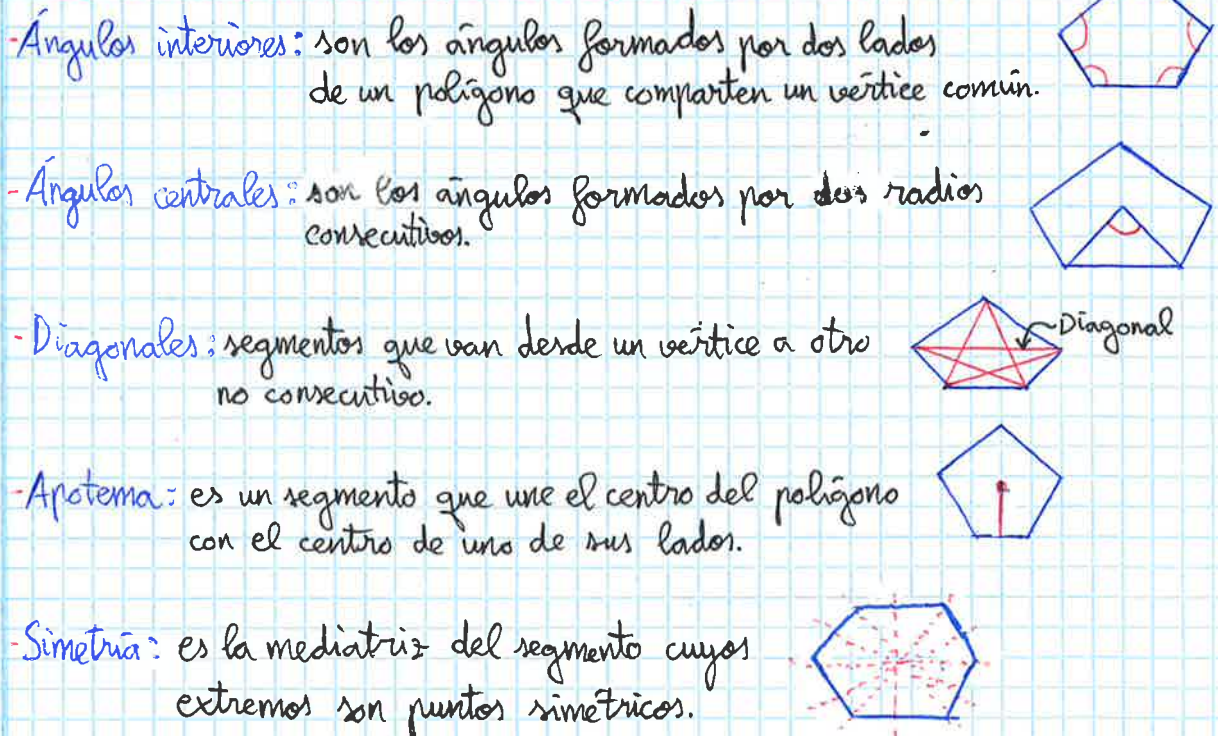 -Ángulos interiores: son los ángulos formados por dos lados
de un polígono que comparten un vértice común.
-Ángulos centrales: son los ángulos formados por dos radios
consecutivos.
-Diagonales: segmentos que van desde un vértice a otro
no consecutivo.
Diagonal
-Apotema: es un segmento que une el centro del polígono
con el centro de uno de sus lados.
-Simetría: es la mediatriz del segmento cuyos
extremos son puntos simétricos.